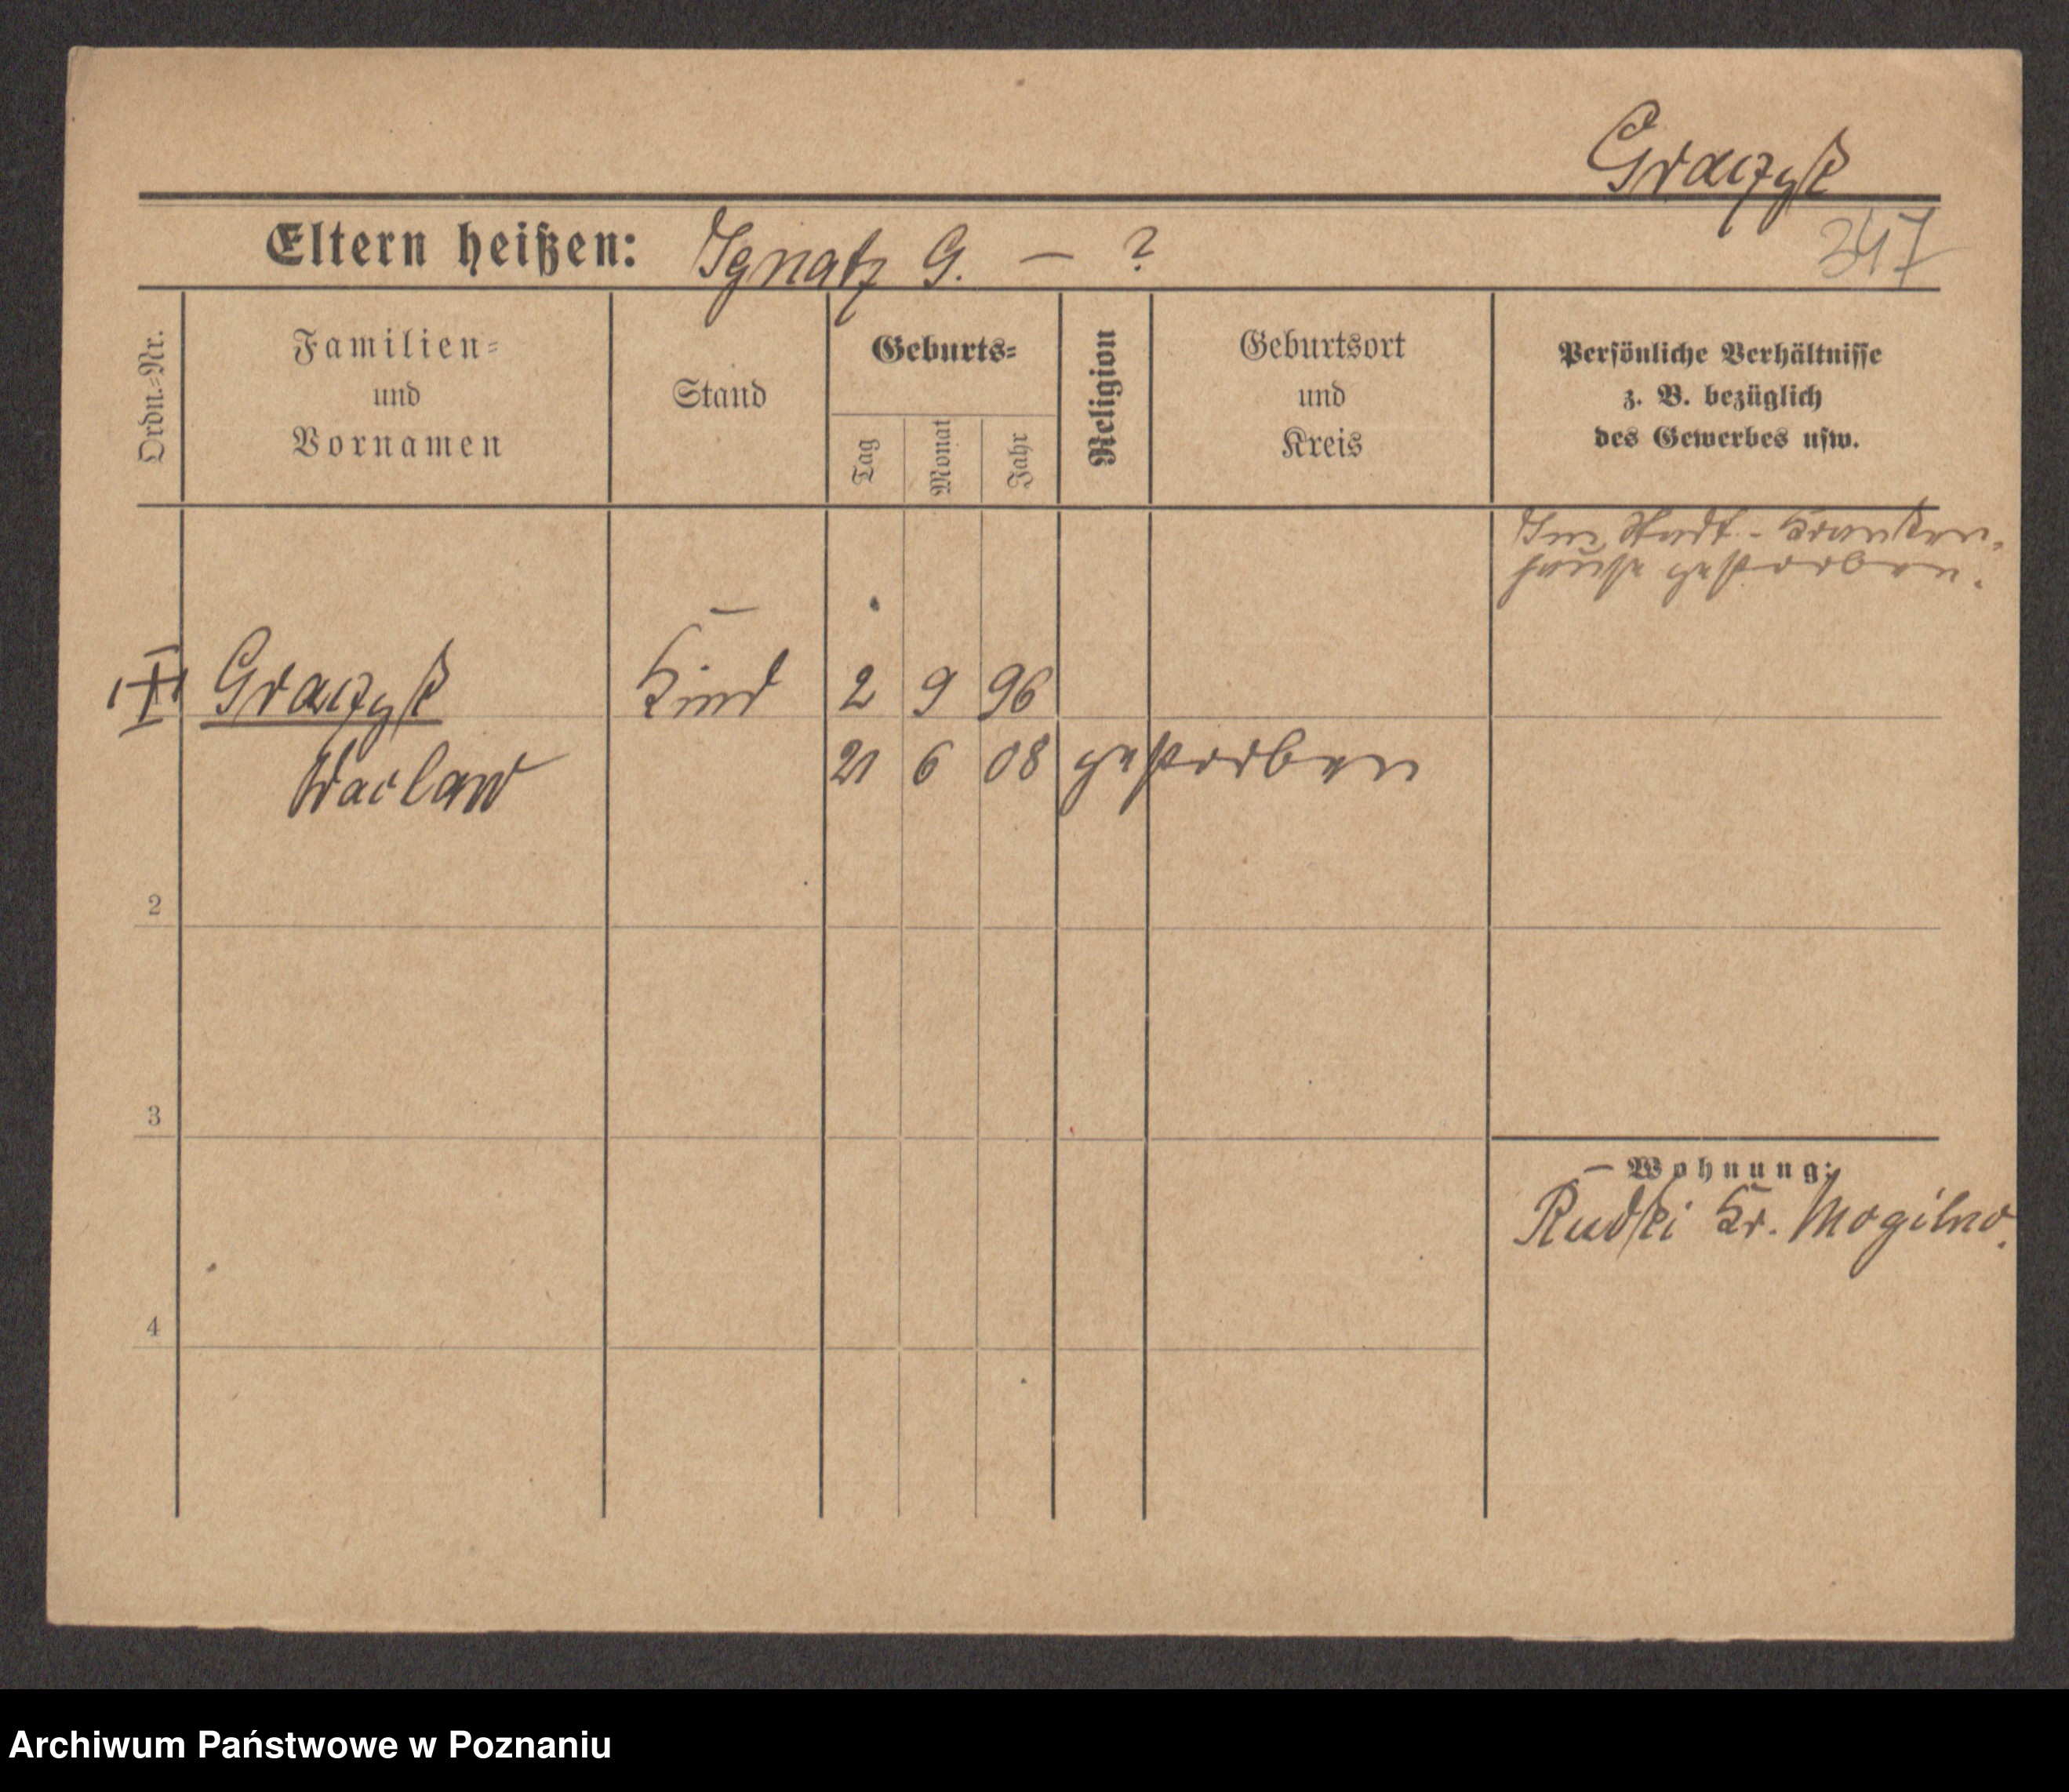 Graczyk
Eltern heißen: Ignatz G. — ?
347
Ordn.-Nr.
Familien-
und
Vornamen
Stand
Geburts-
Tag
Monat
Jahr
Religion
Geburtsort
und
Kreis
Persönliche Verhältnisse
z. B. bezüglich
des Gewerbes usw.
Im Stadt-Kranken-
hause gestorben.
Graczyk Kind 2 9 96
Waclaw 21 6 08 gestorben
2
3
Wohnung:
Rudki Kr. Mogilno.
4
Archiwum Państwowe w Poznaniu